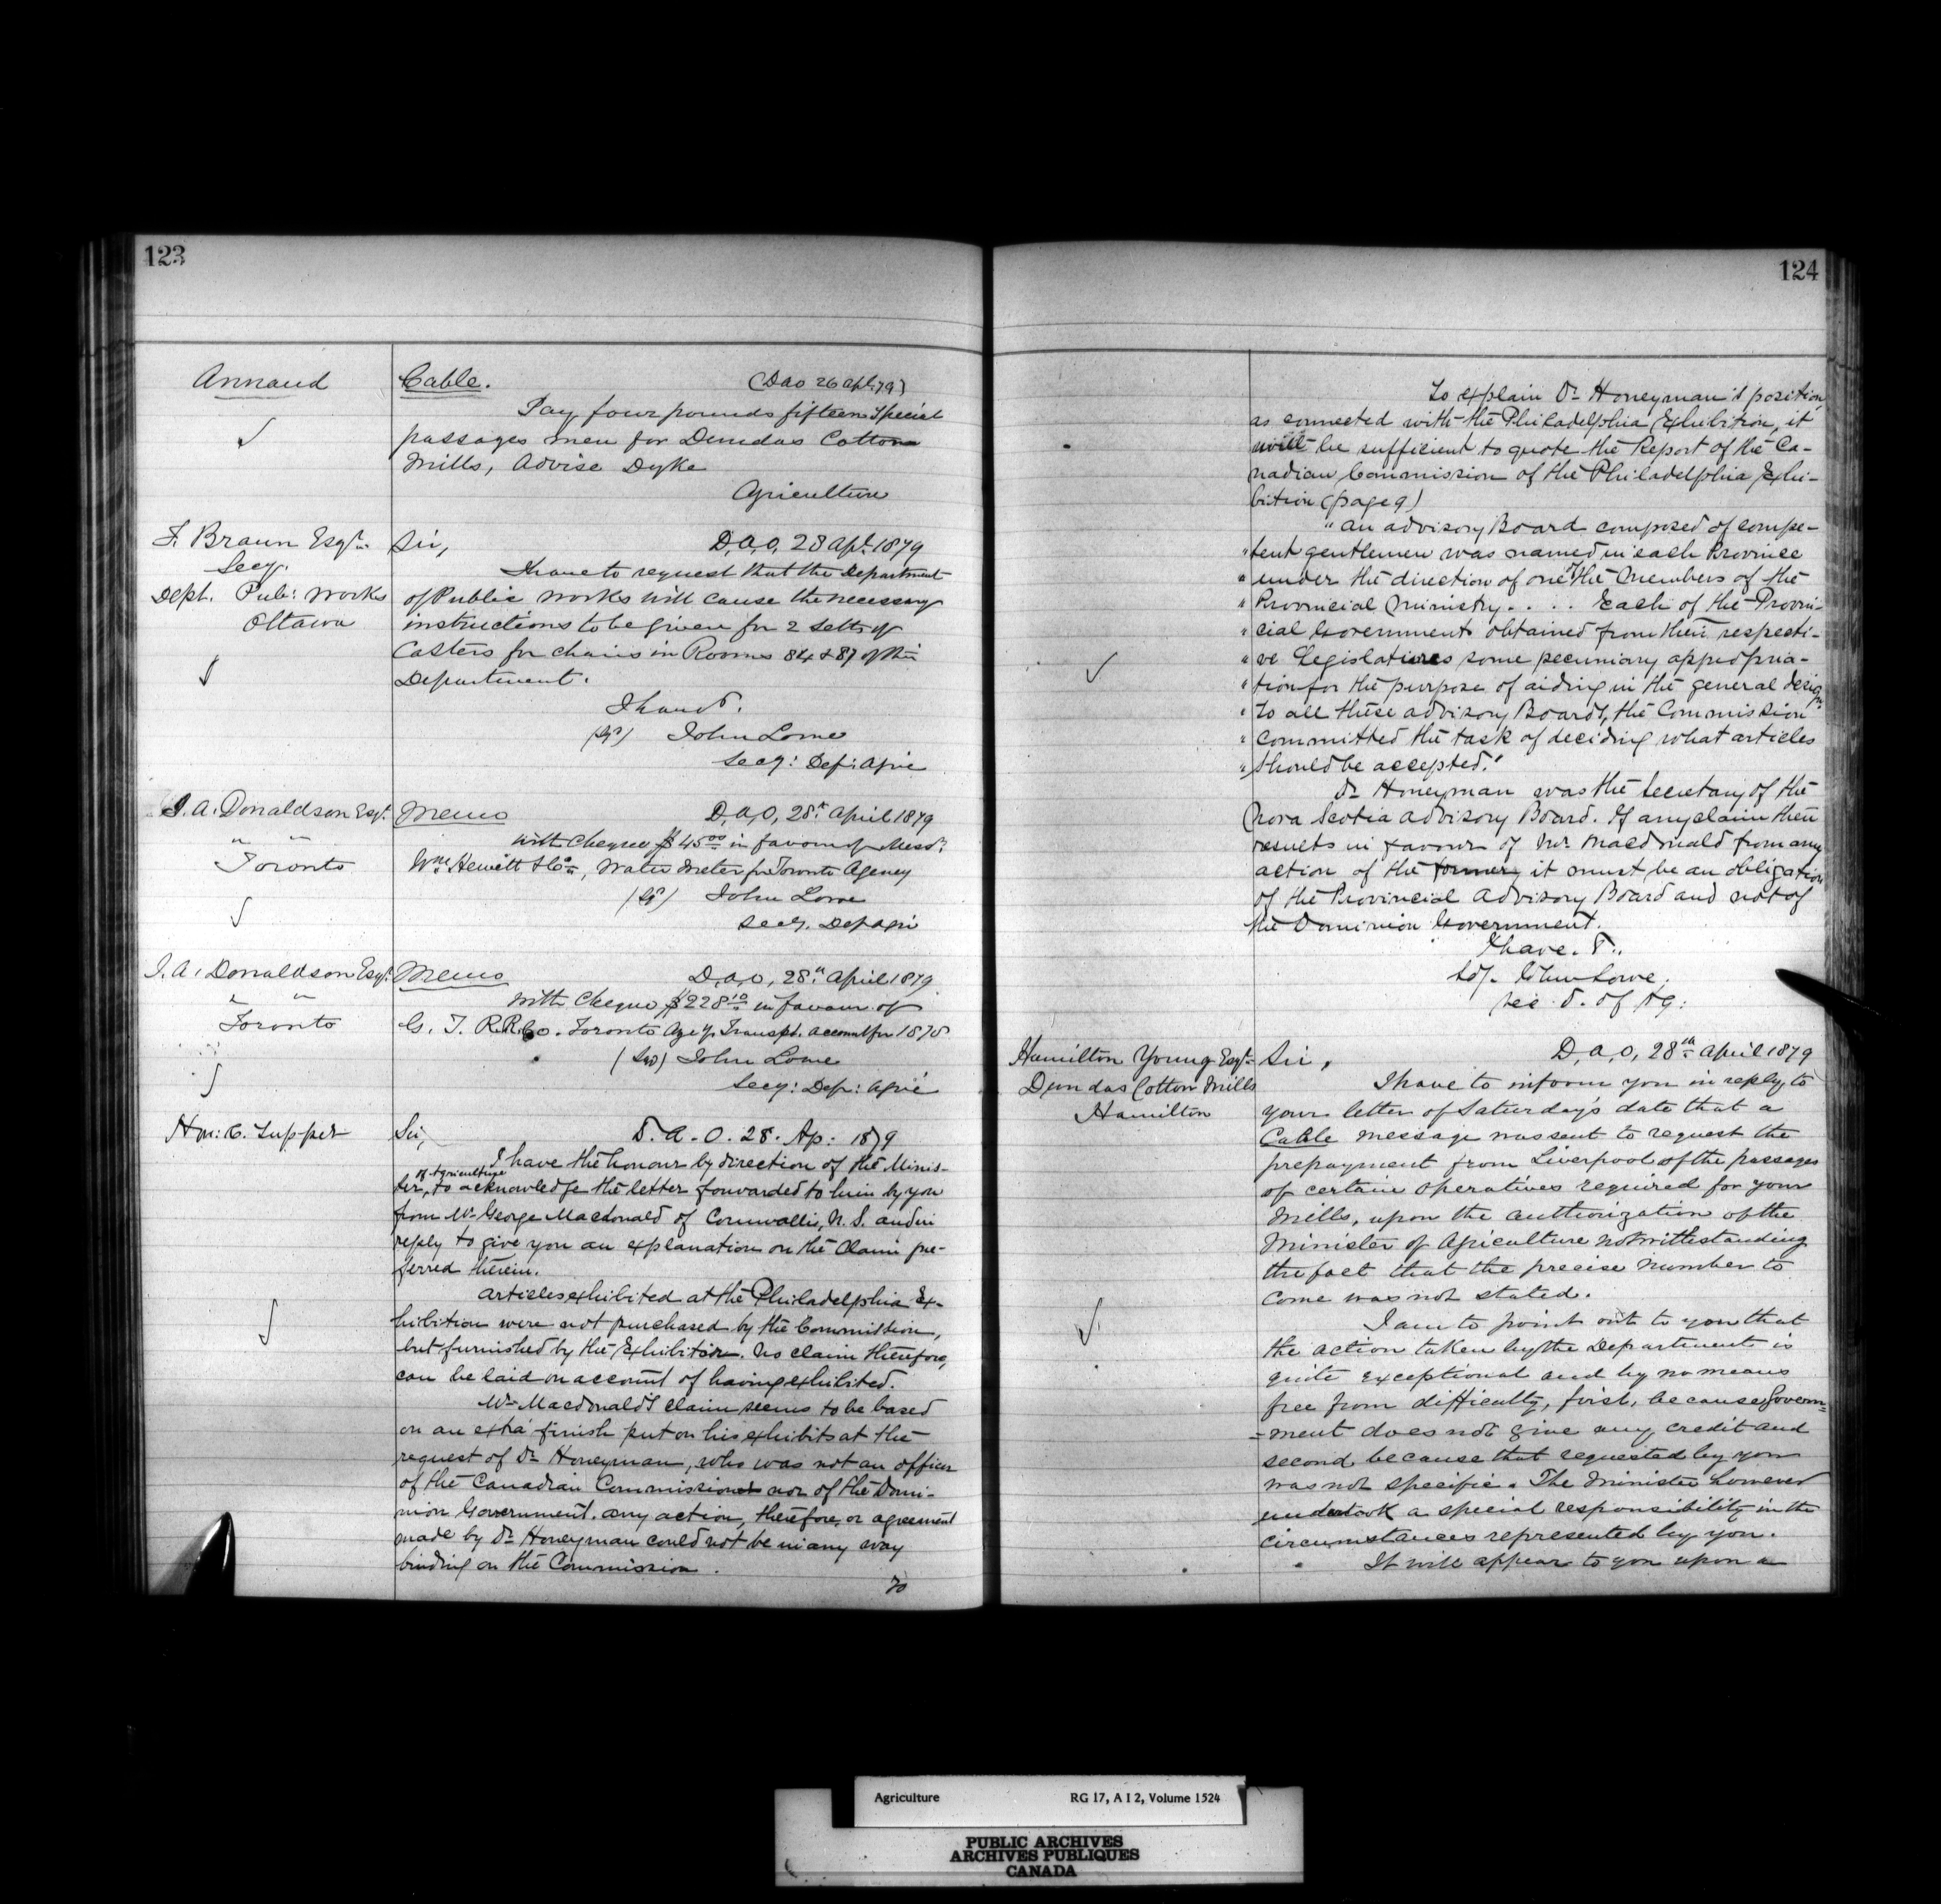 123
Annaud
Cable. (D.a.o 26 apl. 79)
Pay four pounds fifteen special
passages men for Dundas Cotton
Mills, Advise Dyke
Agriculture
F. Braun Esqr.
Secy.
Dept. Pub: Works
Ottawa
Sir, D.A.O. 28 Apl. 1879
I have to request that the Department
of Public Works will cause the necessary
instructions to be given for 2 setts of
Casters for chairs in Rooms 84 & 87 of this
Department.
I have &.
(Sd) John Lowe
Secy: Dep: Agric
J. A. Donaldson Esqr.
" "
Toronto
Memo D.A.O. 28th April 1879
with Cheque $45.00 in favour of Messrs.
Wm. Hewitt & Co., Water Meter for Toronto Agency
(Sd) John Lowe
Secy. Dep Agri
J. A. Donaldson Esqr.
" "
Toronto
Memo D.A.O. 28th April 1879
With Cheque $228.10 in favour of
G. T. R.R. Co. Toronto Agcy. Transpt. account for 1878
(Sd) John Lowe
Secy: Dep: Agric
Hon: C. Tupper
Sir, D. A. O. 28. Ap: 1879
I have the honour by direction of the Minis-
of Agriculture
ter, to acknowledge the letter forwarded to him by you
from Mr George Macdonald of Cornwallis, N. S. and in
reply to give you an explanation on the Claim pre-
ferred therein.
Articles exhibited at the Philadelphia Ex-
hibition were not purchased by the Commission,
but furnished by the Exhibitor. No claim therefore,
can be laid on account of having exhibited.
Mr Macdonald's claim seems to be based
on an extra finish put on his exhibits at the
request of Dr Honeyman, who was not an officer
of the Canadian Commission nor of the Domi-
nion Government. Any action, therefore, or agreement
made by Dr Honeyman could not be in any way
binding on the Commission.
To
124
To explain Dr Honeyman's position
as connected with the Philadelphia Exhibition, it
will be sufficient to quote the Report of the Ca-
nadian Commission of the Philadelphia Exhi-
bition (page 9)
"An advisory Board composed of compe-
"tent gentlemen was named in each Province
"under the direction of one of the Members of the
"Provincial Ministry. . . . Each of the Provin-
"cial Governments obtained from their respecti-
"ve Legislatures some pecuniary appropria-
"tion for the purpose of aiding in the general design
"To all these advisory Boards, the Commission
"committed the task of deciding what articles
"should be accepted."
Dr Honeyman was the Secretary of the
Nova Scotia Advisory Board. If any claim then
results in favour of Mr. Macdonald from any
action of the former, it must be an obligation
of the Provincial Advisory Board and not of
the Dominion Government.
I have. &.
Sd/. John Lowe.
Sec. D. of Ag:
Hamilton Young Esqr.
Dundas Cotton Mills
Hamilton
Sir, D.A.O. 28th April 1879
I have to inform you in reply to
your letter of Saturday's date that a
Cable message was sent to request the
prepayment from Liverpool of the passages
of certain operatives required for your
Mills, upon the authorization of the
Minister of Agriculture notwithstanding
the fact that the precise number to
come was not stated.
I am to point out to you that
the action taken by the Department is
quite exceptional and by no means
free from difficulty, first, because Govern=
=ment does not give any credit and
second because that requested by you
was not specific. The Minister however
undertook a special responsibility in the
circumstances represented by you.
It will appear to you upon a
Agriculture RG 17, A I 2, Volume 1524
PUBLIC ARCHIVES
ARCHIVES PUBLIQUES
CANADA